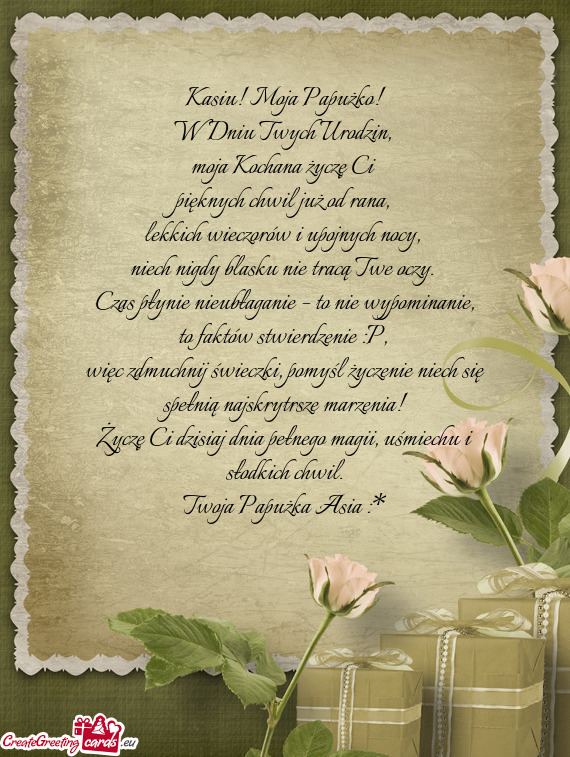 Kasiu! Moja Papużko!
W Dniu Twych Urodzin,
moja Kochana życzę Ci
pięknych chwil już od rana,
lekkich wieczorów i upojnych nocy,
niech nigdy blasku nie tracą Twe oczy.
Czas płynie nieubłaganie - to nie wypominanie,
to faktów stwierdzenie :P,
więc zdmuchnij świeczki, pomyśl życzenie niech się
spełnią najskrytrsze marzenia!
Życzę Ci dzisiaj dnia pełnego magii, uśmiechu i
słodkich chwil.
Twoja Papużka Asia :*
CreateGreeting cards .eu